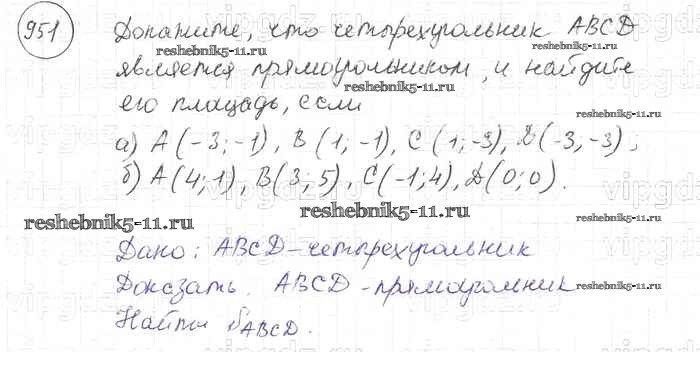 951 Докажите, что четырехугольник ABCD
reshebnik5-11.ru reshebnik5-11.ru
является прямоугольником, и найдите
reshebnik5-11.ru
его площадь, если
а) A(-3;-1), B(1;-1), C(1;-3), D(-3;-3);
reshebnik5-11.ru
б) A(4;1), B(3;5), C(-1;4), D(0;0).
reshebnik5-11.ru reshebnik5-11.ru reshebnik5-11.ru
Дано: ABCD-четырехугольник
Доказать. ABCD-прямоугольник
reshebnik5-11.ru
Найти SABCD.